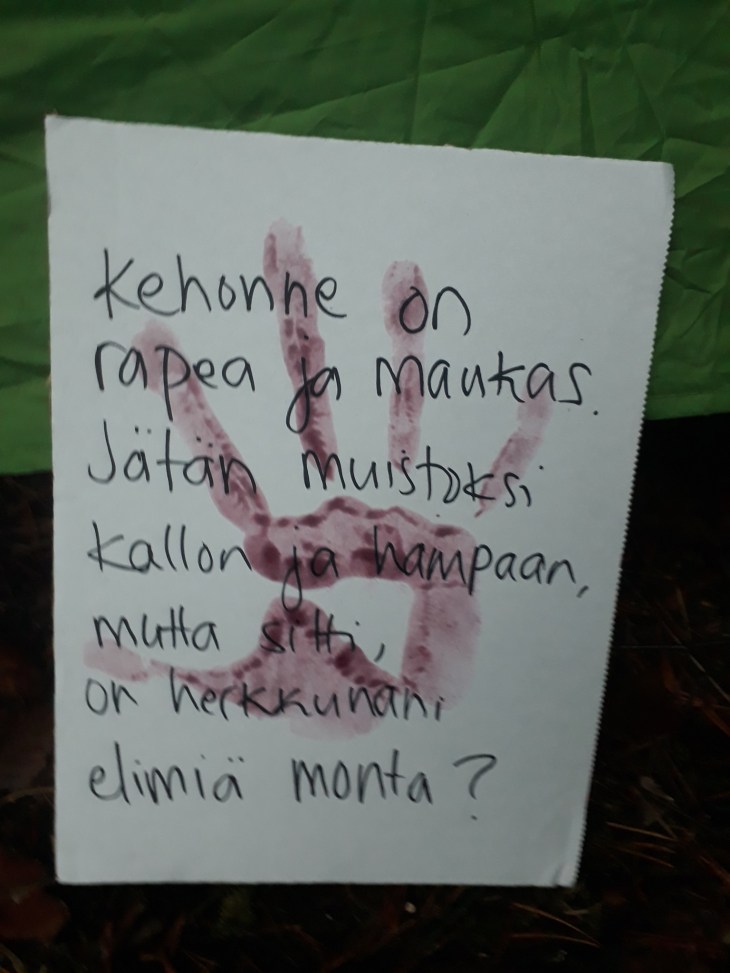 Kehonne on
rapea ja maukas.
Jätän muistoksi
kallon ja hampaan,
mutta sitti,
on herkkunani
elimiä monta?